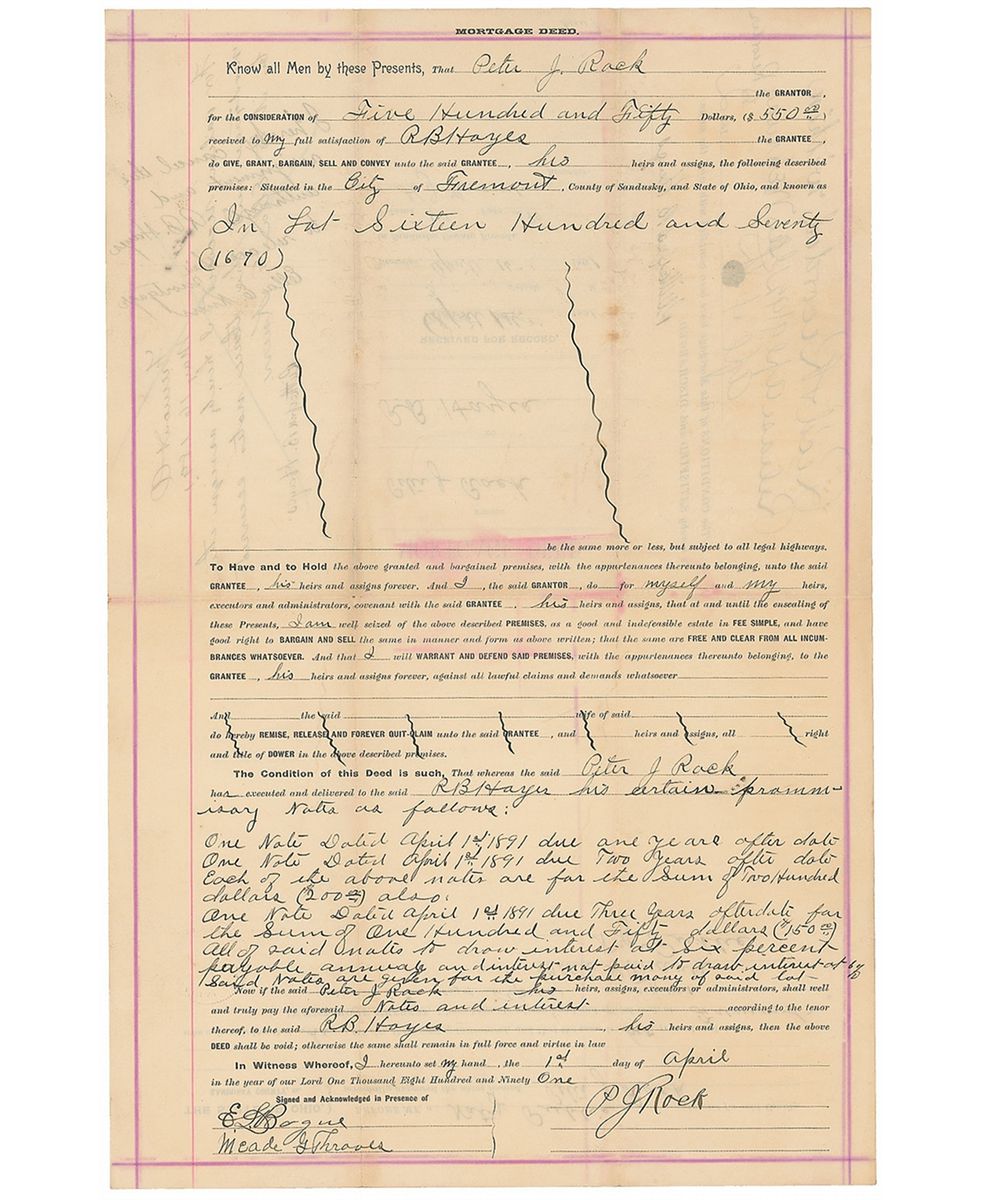 MORTGAGE DEED.
Know all Men by these Presents, That Peter J. Rock
the GRANTOR ,
for the CONSIDERATION of Five Hundred and Fifty Dollars, ($ 550 00 )
received to my full satisfaction of RBHayes the GRANTEE ,
do GIVE, GRANT, BARGAIN, SELL AND CONVEY unto the said GRANTEE , his heirs and assigns, the following described
premises: Situated in the City of Fremont , County of Sandusky, and State of Ohio, and known as
In Lot Sixteen Hundred and Seventy
(1670)
be the same more or less, but subject to all legal highways.
To Have and to Hold the above granted and bargained premises, with the appurtenances thereunto belonging, unto the said
GRANTEE , his heirs and assigns forever. And I , the said GRANTOR , do for myself and my heirs,
executors and administrators, covenant with the said GRANTEE his heirs and assigns, that at and until the ensealing of
these Presents, I am well seized of the above described PREMISES, as a good and indefeasible estate in FEE SIMPLE, and have
good right to BARGAIN AND SELL the same in manner and form as above written; that the same are FREE AND CLEAR FROM ALL INCUM-
BRANCES WHATSOEVER. And that I will WARRANT AND DEFEND SAID PREMISES, with the appurtenances thereunto belonging, to the
GRANTEE , his heirs and assigns forever, against all lawful claims and demands whatsoever
And the said wife of said
do hereby REMISE, RELEASE AND FOREVER QUIT-CLAIM unto the said GRANTEE , and heirs and assigns, all right
and title of DOWER in the above described premises.
The Condition of this Deed is such, That whereas the said Peter J Rock
has executed and delivered to the said RBHayes his certain promm-
isory Notes as follows:
One Note Dated April 1st 1891 due one year after date
One Note Dated April 1st 1891 due Two Years after date
Each of the above notes are for the Sum of Two Hundred
dollars ($200 00) also:
One Note Dated April 1st 1891 due Three Years after date for
the Sum of One Hundred and Fifty dollars ($150 00)
All of said notes to draw interest at six percent
payable annualy and interest not paid to draw interest at 6%
Said Notes are given for the purchase money of said Lot
Now if the said Peter J Rock his heirs, assigns, executors or administrators, shall well
and truly pay the aforesaid Notes and interest according to the tenor
thereof, to the said R.B. Hayes , his heirs and assigns, then the above
DEED shall be void; otherwise the same shall remain in full force and virtue in law
In Witness Whereof, I hereunto set my hand , the 1st day of April
in the year of our Lord One Thousand Eight Hundred and Ninety One
Signed and Acknowledged in Presence of
P J Rock
E L Bogue
Meade G Thraves